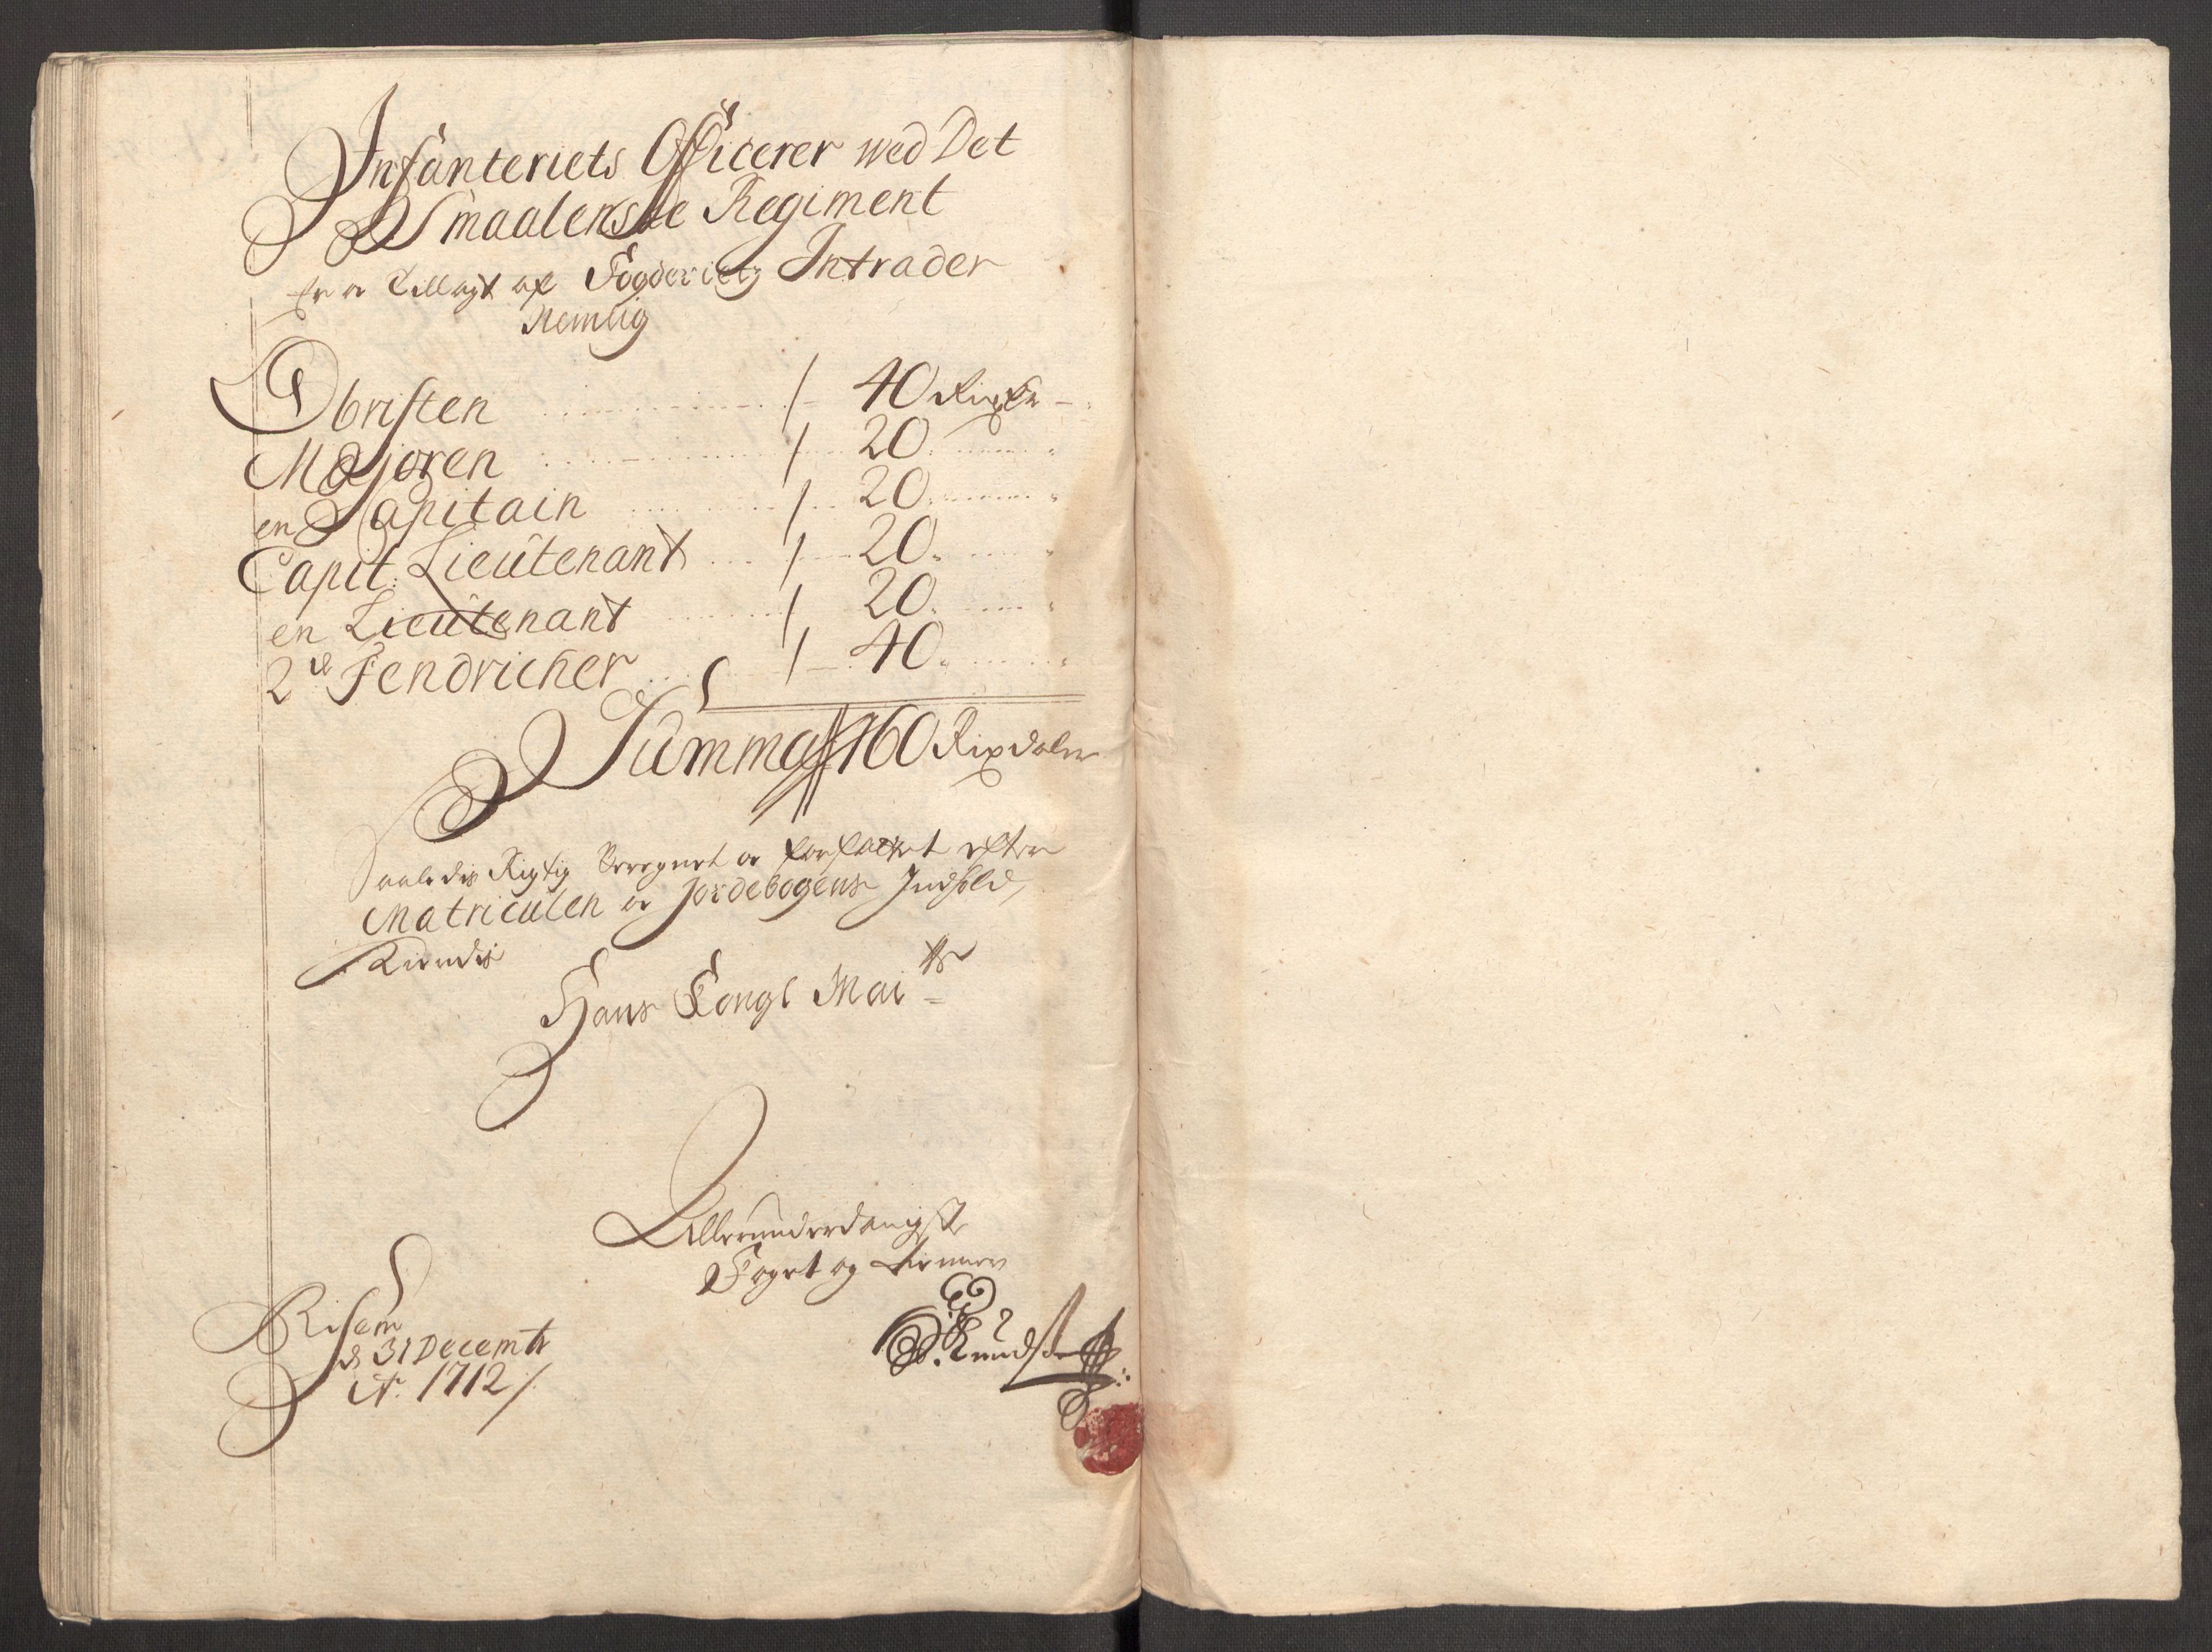 Infanteriets Officerer wed Det
Smaalenske Regiment
Er tillagt af Fogderietz Intrader
Nemlig
Obristen 1 - 40 Rixdr -
Majoren 1 20
en Capitain 1 20
Capit: Lieutenant 1 20
en Lieutenant 1 20
2de Fendricher 1 - 40
Summa 160 Rixdaler
Saaledis Rigtig Beregnet og forfattet efter
Matriculen og Jordebogens Indhold,
Kiendis
Hans Kongl Maits
Allerunderdanigste
Foget og Tienner
Knudsen
Risom
d 31 Decembr
Ao. 1712 /.